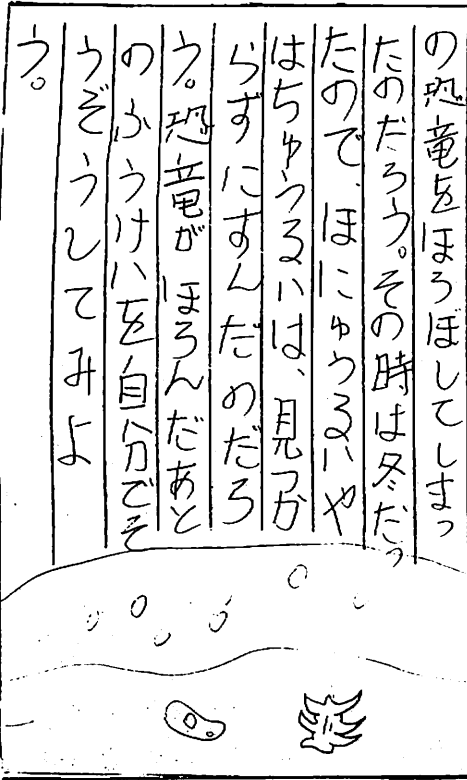 の恐竜をほろぼしてしまっ
たのだろう。その時は冬だっ
たので、ほにゅうるいや
はちゅうるいは、見つか
らずにすんだのだろ
う。恐竜がほろんだあと
のふうけいを自分でそ
うぞうしてみよ
う。